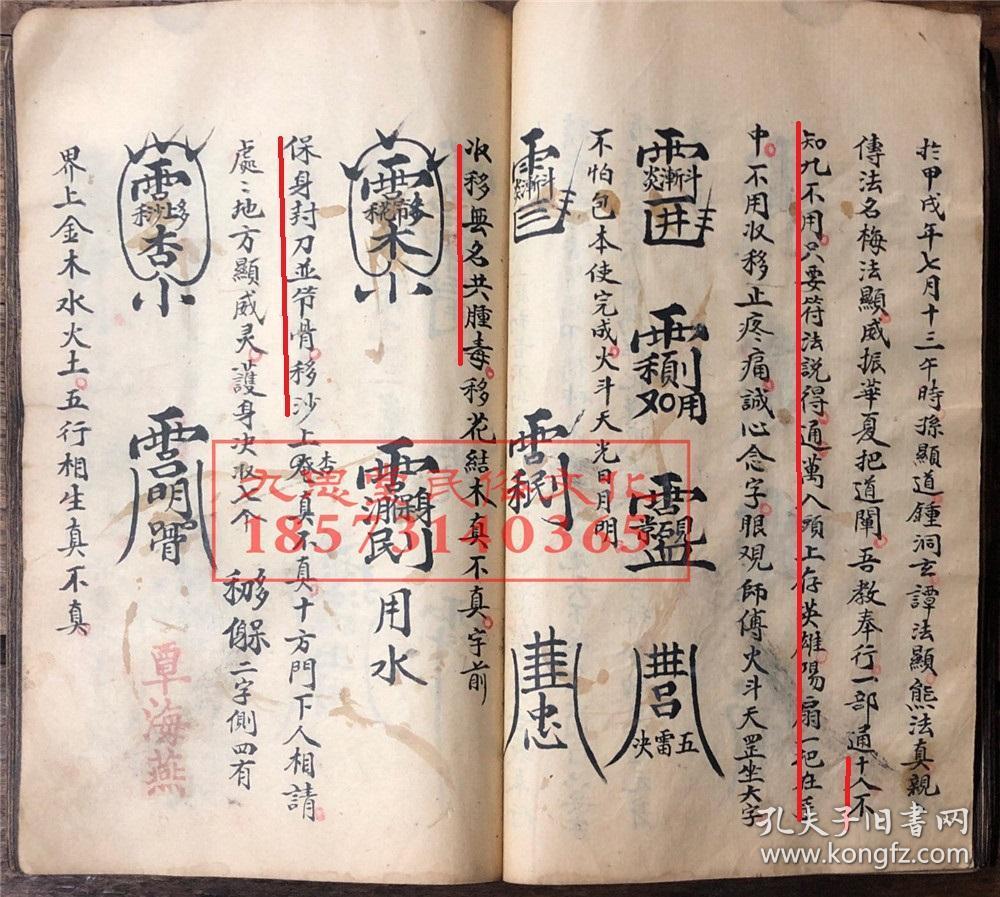 於甲戌年七月十三午時孫顯道鍾洞玄譚法顯熊法真親
傳法名梅法顯威振華夏把道闡吾教奉行一部通十人不
知九不用只要符法説得通萬人頭上存英雄陽扇一把在手
中不用收移止疼痛誠心念字眼观師傅火斗天罡坐大字
五雷决
不怕包本使完成火斗天光日月明
收移無名共腫毒移花結木真不真字前
用水
保身封刀並节骨移沙上杏真不真十方門下人相請
處〻地方顯威灵護身决收七个
二字側四有
覃海燕
界上金木水火土五行相生真不真
九思堂民俗文化
18573140365
孔夫子旧书网
www.kongfz.com